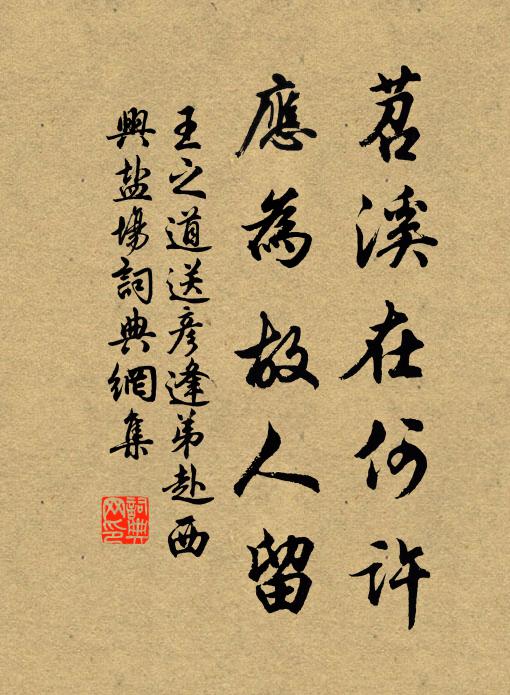 苕溪在何許
應為故人留
王之道送彥逢弟赴西
興盐場詞典網集
詞典
网印